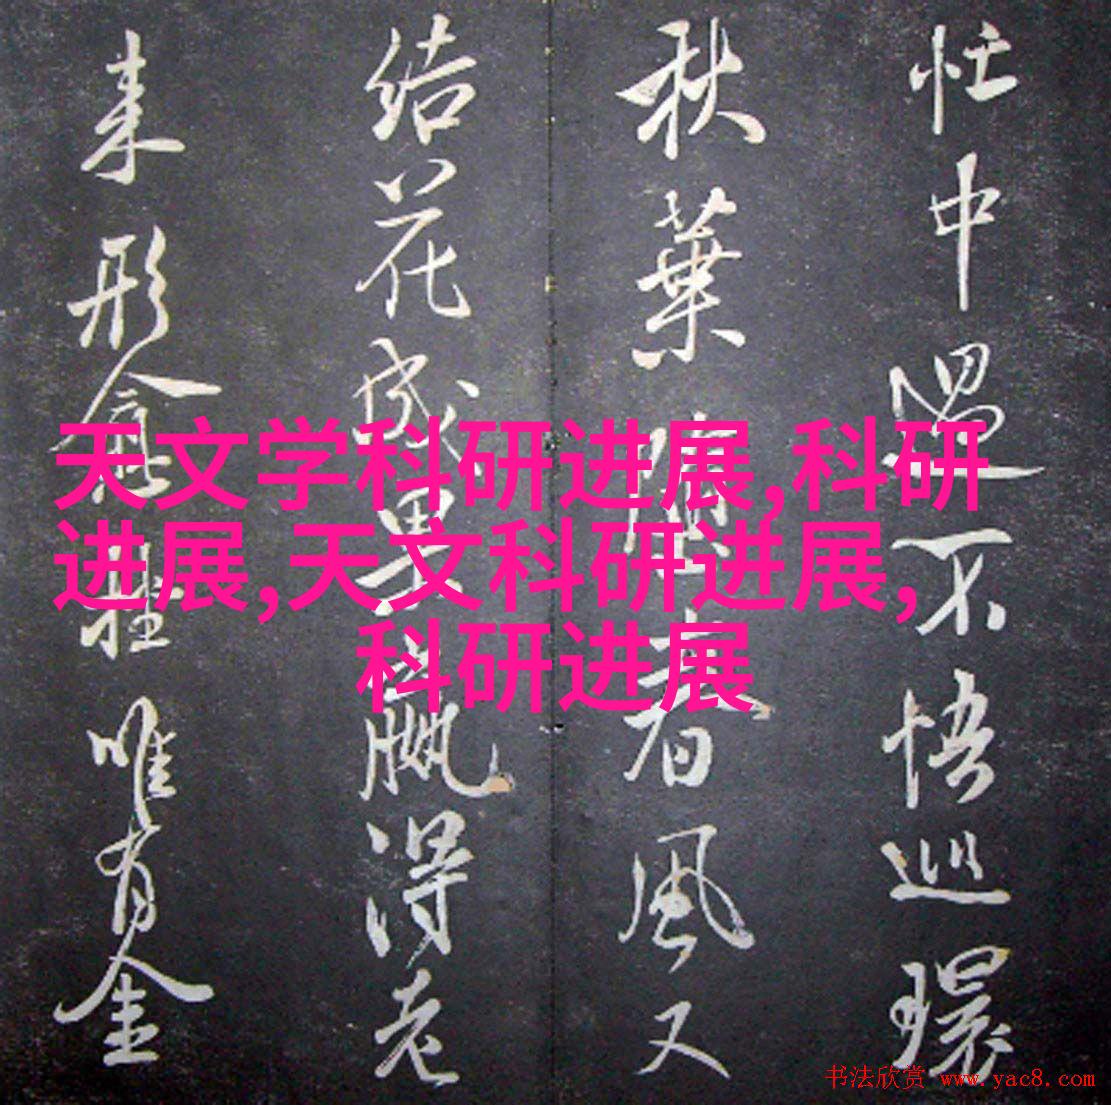 忙中過不悟巡環
秋葉春風又
結花成果贏得老
来形唯有金
天文学科研进展,科研
进展,天文科研进展,
科研进展
书法欣赏 www.yac8.com